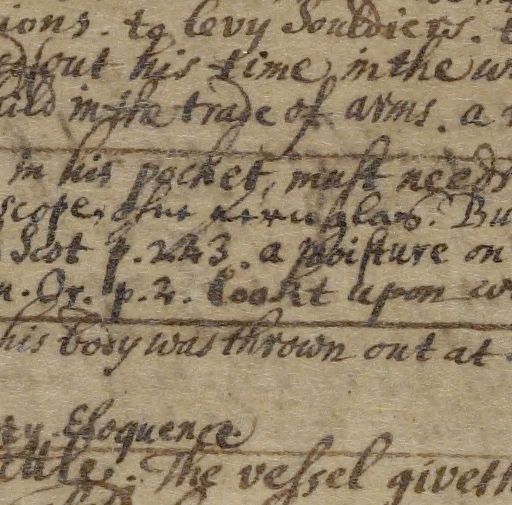 ions. to levy Souldiers.
out his time in the
in the trade of arms. a
in his pocket, must needs
scope, Bu
Scot p. 223. a moisture on
p. 2. lookt upon
his body was thrown out at
Eloquence
The vessel giveth